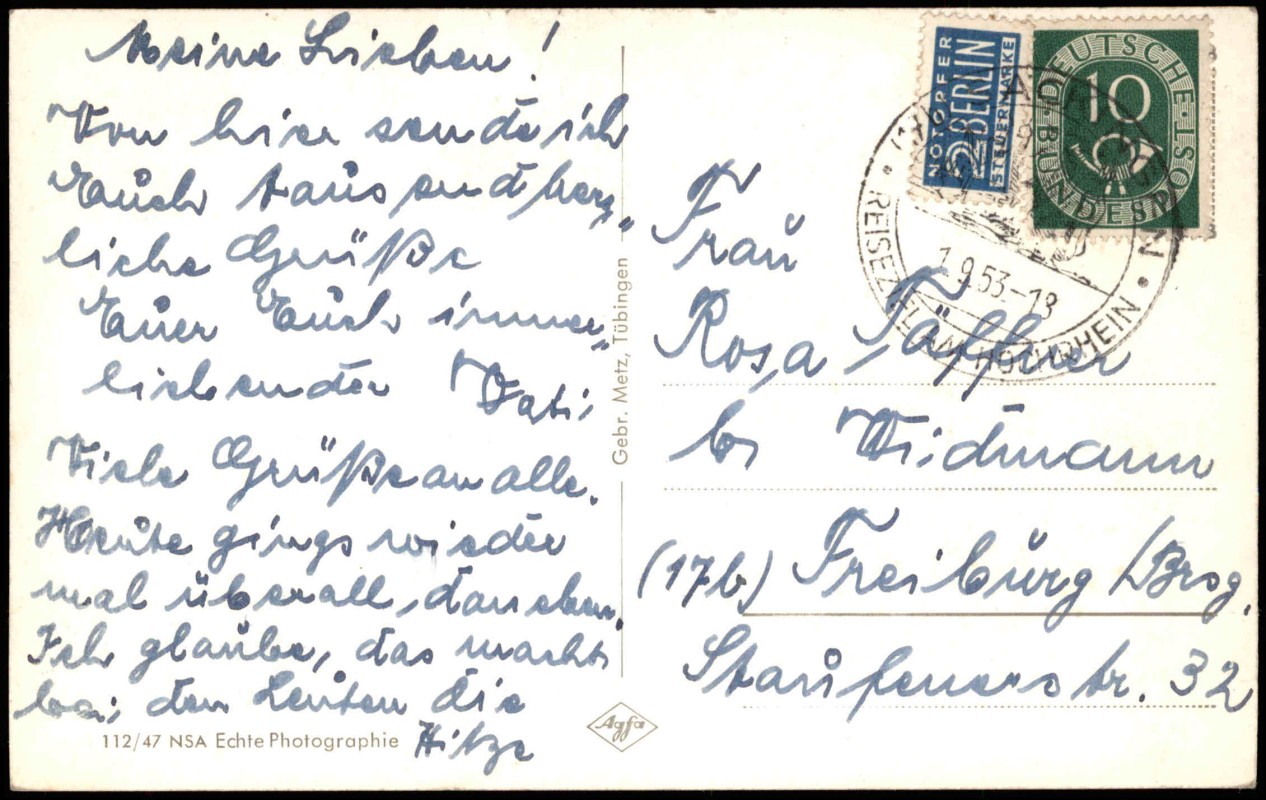 Meine Lieben!
Von hier sende ich
Euch tausend herz-
liche Grüße
Euer Euch immer
liebender Vati
Viele Grüße an alle.
Heute gings wieder
mal überall daneben.
Ich glaube, das macht
bei den Leuten die
Hitze
112/47 NSA Echte Photographie
Gebr. Metz, Tübingen
Agfa
NOTOPFER
2 BERLIN
STEUERMARKE
DEUTSCHE BUNDESPOST
10
1.9.53.-18
REISEZIEL AM HOCHRHEIN
Frau
Rosa Täffner
b/ Widmann
(17b) Freiburg /Brsg.
Staufenerstr. 32